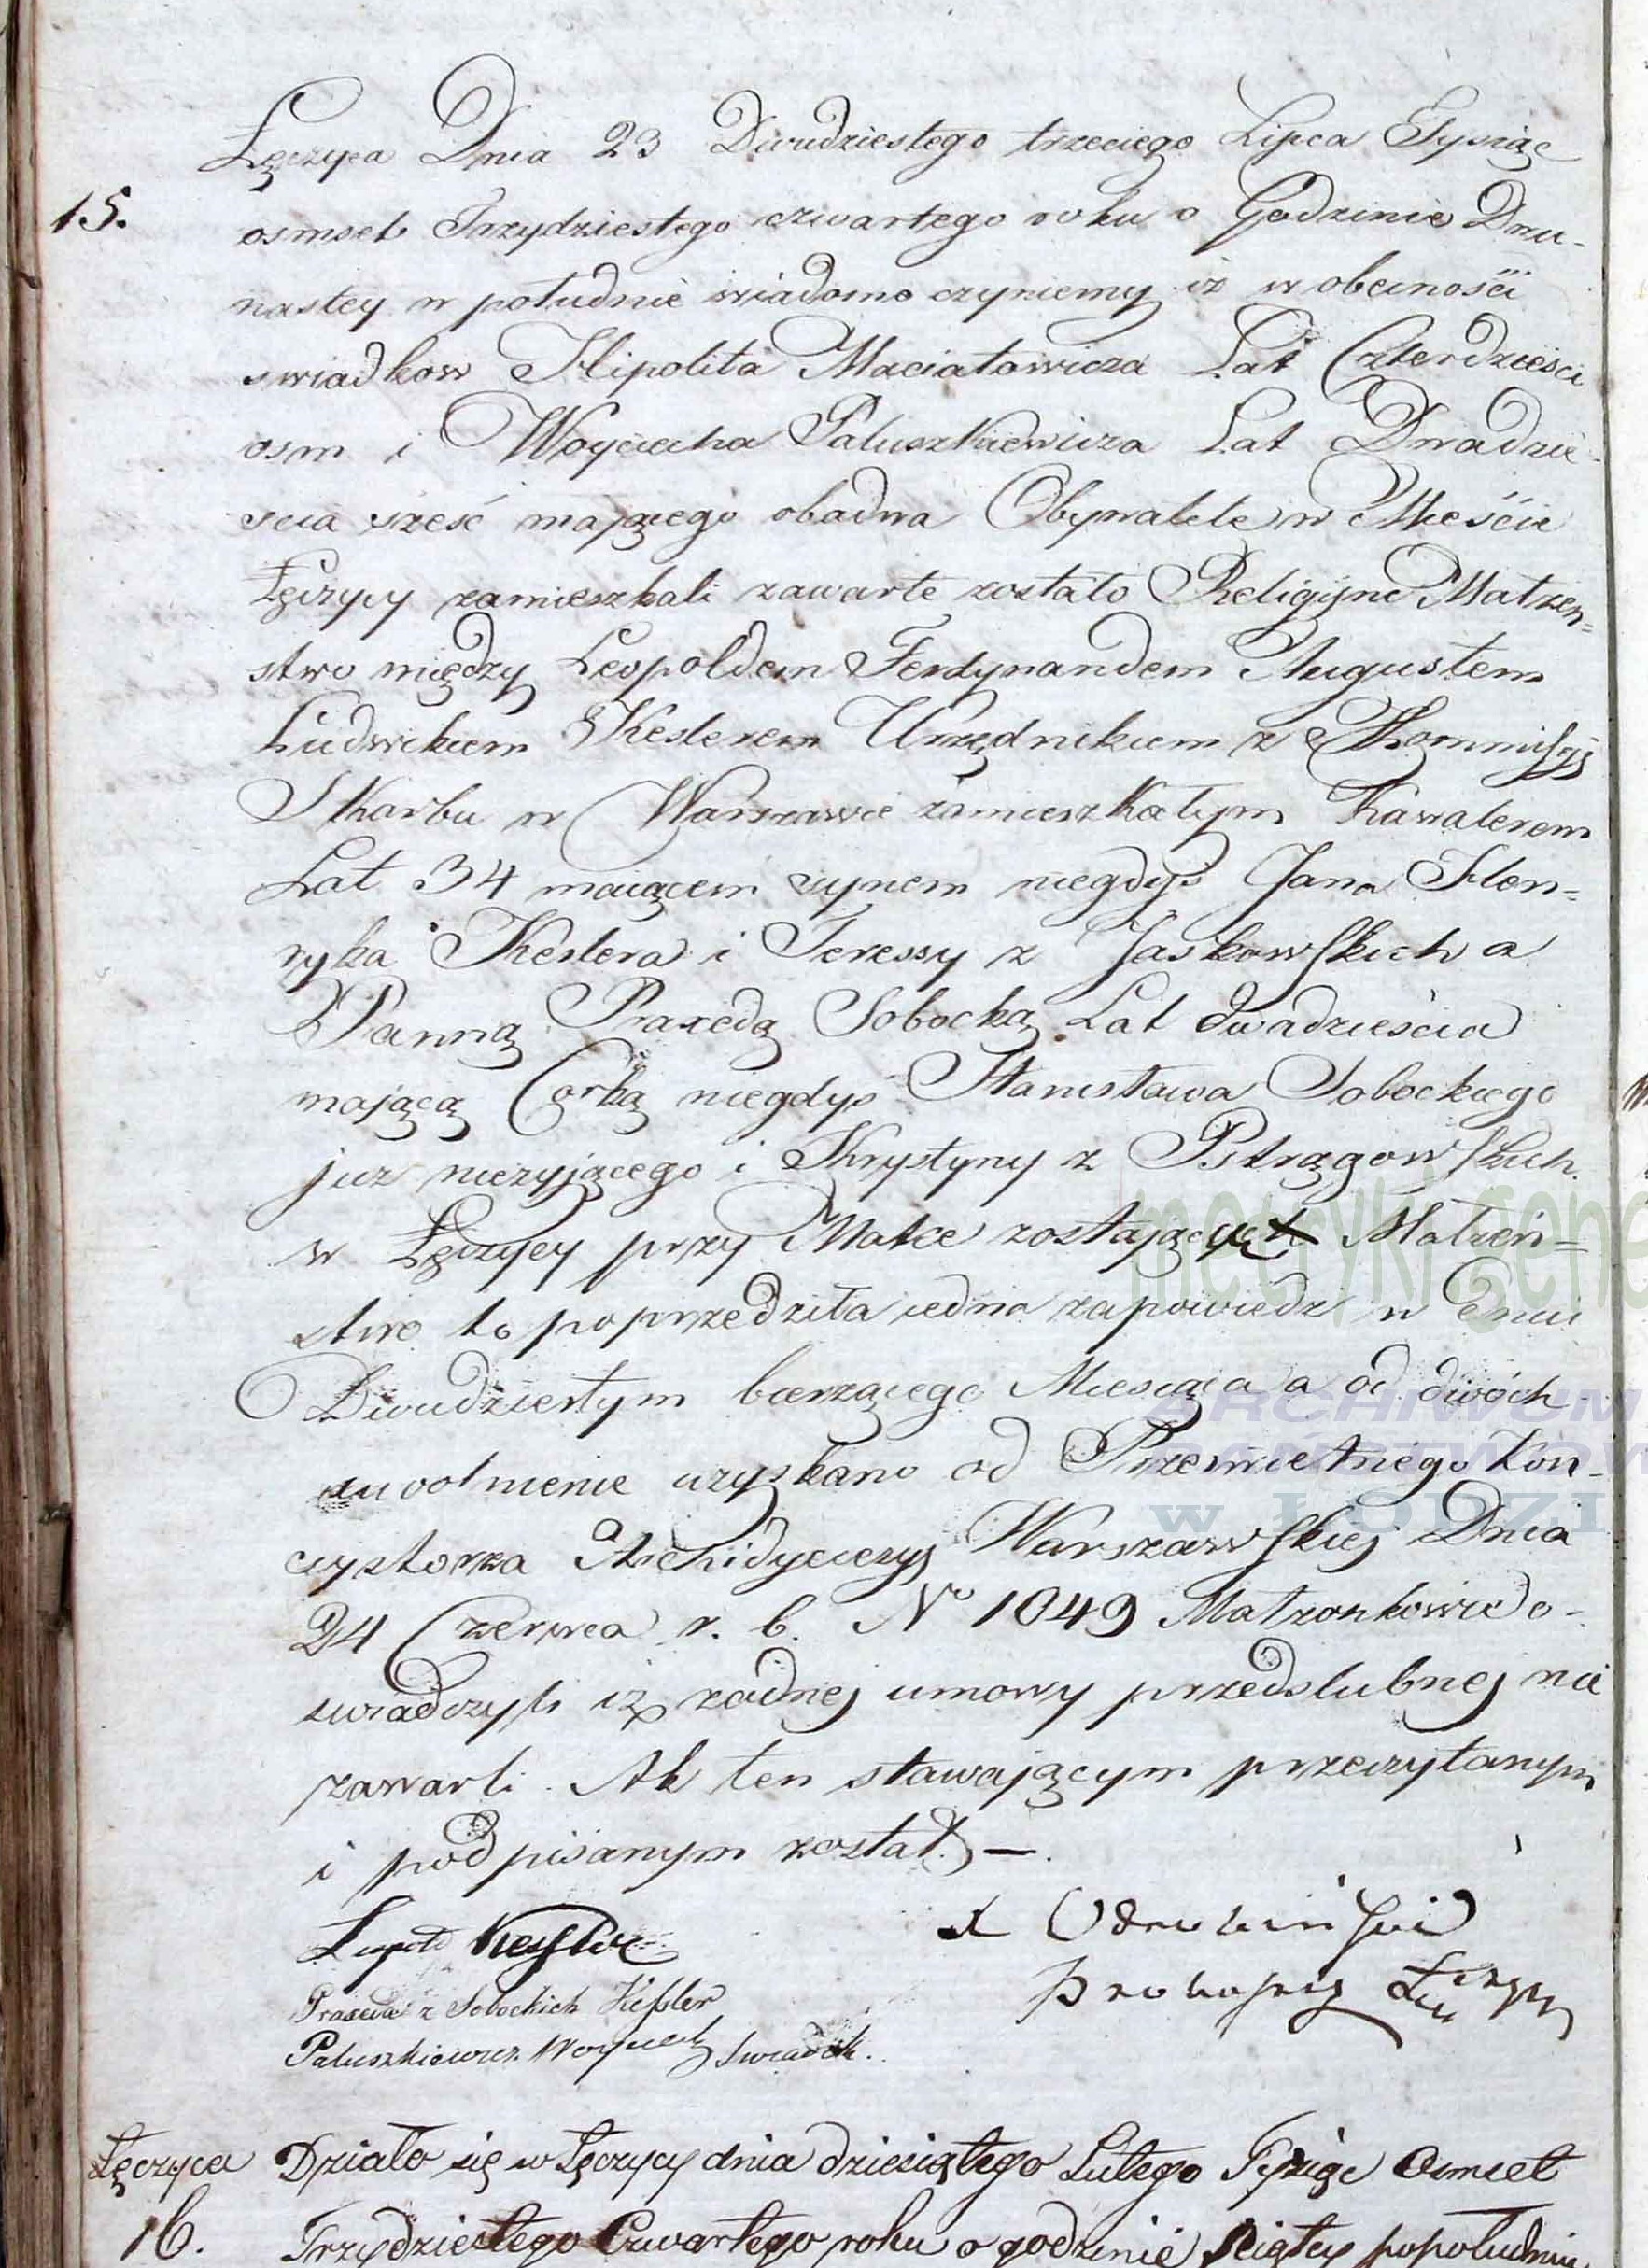 Łęczyca Dnia 23 Dwudziestego trzeciego Lipca Tysiąc
15.
osmset Trzydziestego czwartego roku o Godzinie Dwu-
nastey w południe wiadomo czyniemy iż w obecności
swiadkow Hipolita Maciatowicza Lat Czterdzieści
osm i Woyciecha Paluszkiewicza Lat Dwadzie-
scia sześć mającego obadwa Obywatele w Mieście
Łęczycy zamieszkali zawarte zostało Religijne Małżen=
stwo między Leopoldem Ferdynandem Augustem
Ludwikiem Keslerem Urzędnikiem z Kommissyi
Skarbu w Warszawie zamieszkałym Kawalerem
Lat 34 maiącem synem niegdyś Jana Hen=
ryka Keslera i Teressy z Jaskowskich a
Panną Praxedą Sobocką Lat dwadzieścia
mającą Corką niegdyś Stanisława Sobockiego
juz nieżyjącego i Krystyny z Pstrągowskich
w Łęczycy przy Matce zostającą Małżeń=
stwo to poprzedziła iedna zapowiedz w dniu
Dwudziestym bierzącego Miesiąca a od dwóch
uwolnienie uzyskano od Prześwietnego Kon-
systorza Archidyecezyj Warszawskiej Dnia
24 Czerwca r. b. No 1049 Małżonkowie o-
swiadczyli iż żadnej umowy przedslubnej nie
zawarli. Akt ten stawającym przeczytanym
i podpisanym został. —.
Leopold Kessler
X Odrowiński
Praxeda z Sobockich Kessler
Proboszcz Łęczyc
Paluszkiewicz Woyciech swiadek.
Łęczyca Działo się w Łęczycy dnia dziesiątego Lutego Tysiąc Osmset
16. Trzydziestego Czwartego roku o godzinie piątey popołudniu
metryki.gene
ARCHIWUM
PAŃSTWOW
w ŁODZI